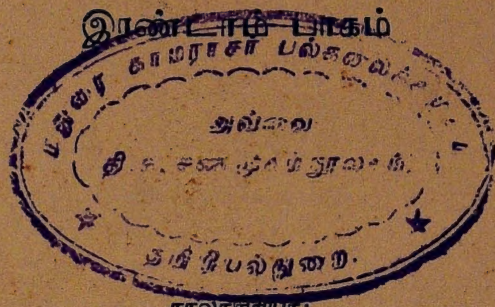 இரண்டாம் பாகம்
மதுரை காமராசர் பல்கலைக்
அவ்வை
தி. க. சண்முகம் நூலகம்,
தமிழியல்துறை.